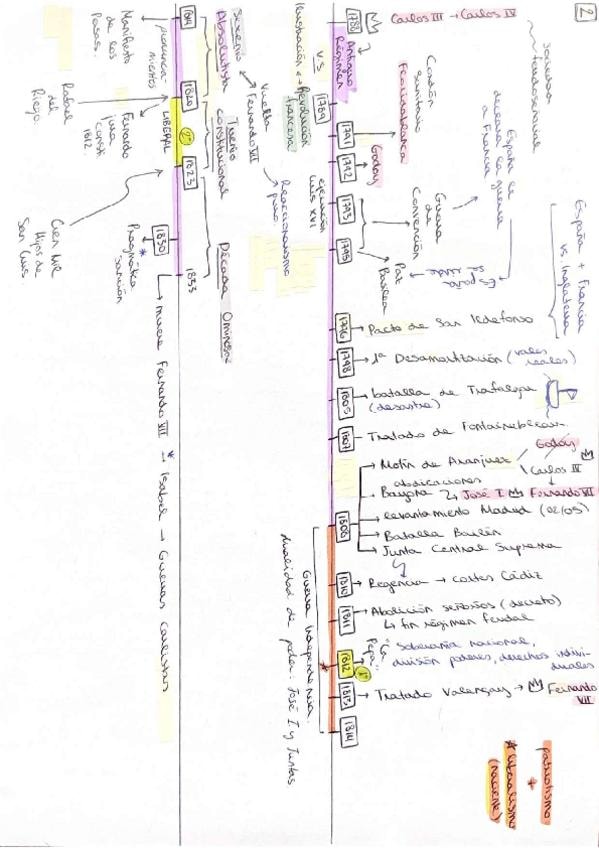 2
Carlos III → Carlos IV
1788
Antiguo
Régimen
sociedad
feudoseñorial
Ilustración ↔ Revolución
francesa
V.S
1789
Cordón
sanitario
Floridablanca
1791
Godoy
1792
ejecución
Luis XVI
España le
declara la guerra
a Francia
1793
Guerra
de
Convención
1795
Paz
Basilea
España
España + Francia
vs. Inglaterra
1796 → Pacto de San Ildefonso
1798 → 1ª Desamortización (vales
reales)
1805 → batalla de Trafalgar
(desastre)
1807 → Tratado de Fontainebleau
1808
→ Motín de Aranjuez
Godoy
Carlos IV
abdicaciones
→ Bayona → José I Fernando VII
→ levantamiento Madrid (02/05)
→ Batalla Bailén
→ Junta Central Suprema
1810 → Regencia → cortes Cádiz
1811 → Abolición señoríos (decreto)
↳ fin régimen feudal
1812 1ª
"La
Pepa" soberanía nacional,
división poderes, derechos indivi-
duales
1813 → Tratado Valençay → Fernando
VII
1814
Guerra Independencia
dualidad de poder: José I y Juntas
patriotismo
+
* liberalismo
(naciente)
1814
Sexenio
Absolutista
Manifiesto
de los
Persas.
pronuncia-
mientos
Vuelta
Fernando VII
1820
Trienio
constitucional
LIBERAL
2º
Fernando
jura
consti
1812.
Rafael
del
Riego.
1823
Reaccionarismo
puro.
Década Ominosa
Cien Mil
Hijos de
San Luis
1830
* Pragmática
sanción
1833
→ muere Fernando VII * → Isabel → Guerras carlistas